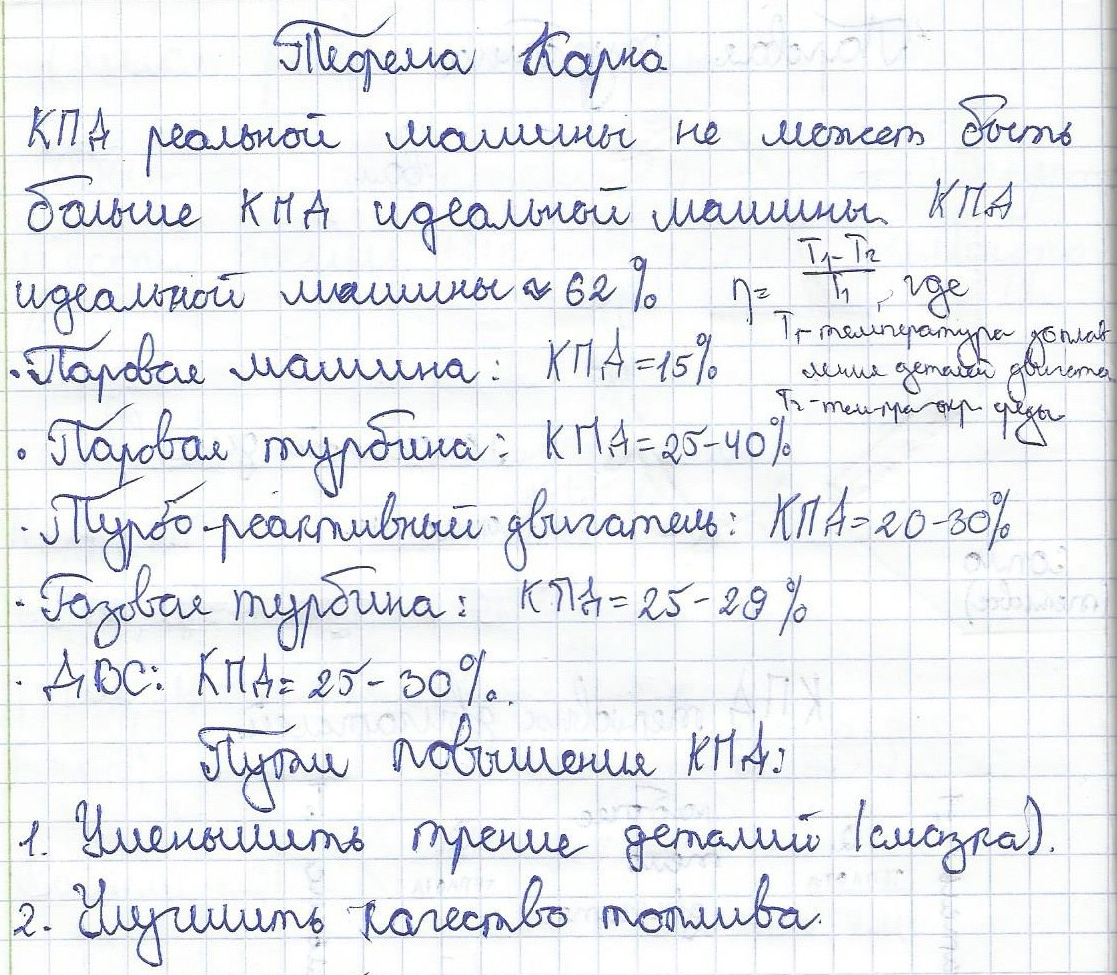 Теорема Карно
КПД реальной машины не может быть
больше КПД идеальной машины. КПД
идеальной машины ≈ 62% η = (T₁-T₂)/T₁, где
T₁-температура доплав
ления деталей двигате
T₂-тем-ра окр. среды
• Паровая машина: КПД=15%
• Паровая турбина: КПД=25-40%
• Турбо-реактивный двигатель: КПД=20-30%
• Газовая турбина: КПД=25-29%
• ДВС: КПД=25-30%.
Пути повышения КПД:
1. Уменьшить трение деталий (смазка).
2. Улучшить качество топлива.